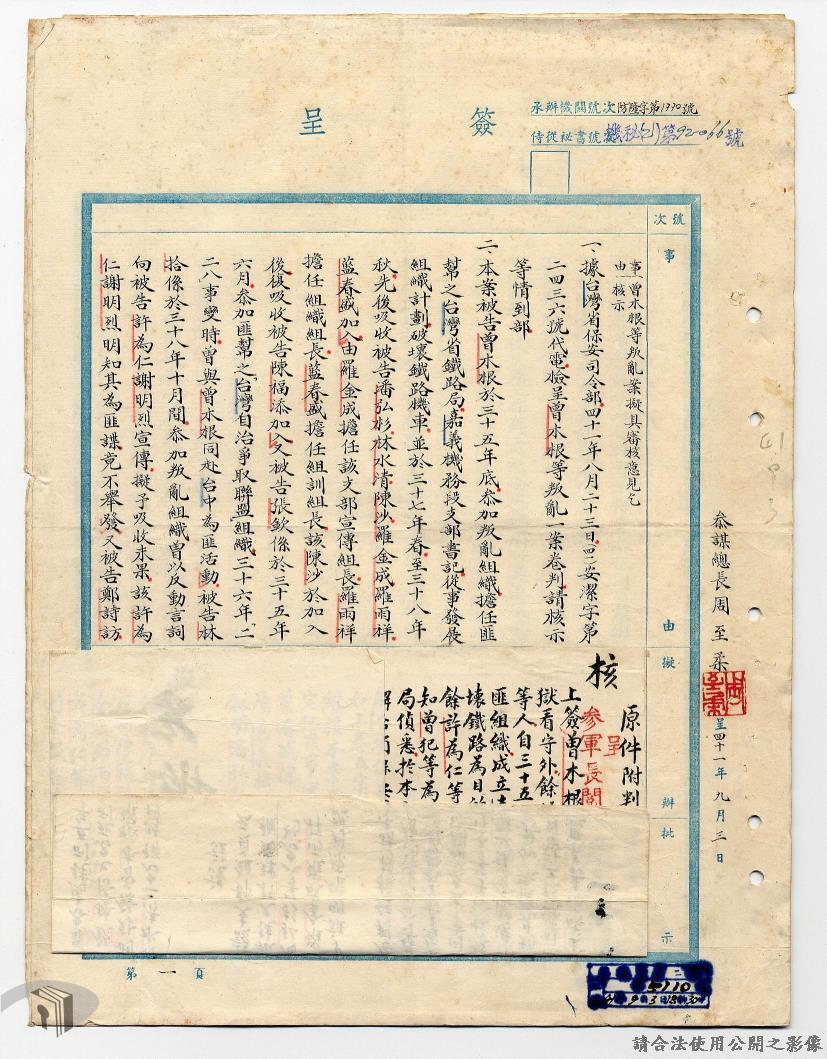 簽呈
承辦機關號次 防隆字第1770號
侍從祕書號 機秘(乙)第92-066號
號次
事由擬辦批示
參謀總長周至柔
呈四十一年九月三日
事由 曾水根等叛亂案擬具審核意見乞核示
一、據台灣省保安司令部四十一年八月二十三日(四一)安潔字第
二四三六號代電檢呈曾水根等叛亂一案卷判請核示
等情到部
二、本案被告曾水根於三十五年底參加叛亂組織擔任匪
幫之台灣省鐵路局嘉義機務段支部書記從事發展
組織計劃破壞鐵路機車並於三十七年春至三十八年
秋先後吸收被告潘弘杉林水清陳沙羅金成羅雨祥
藍春盛加入由羅金成擔任該支部宣傳組長羅雨祥
擔任組織組長藍春盛擔任組訓組長該陳沙於加入
後復吸收被告陳福添加入又被告張欽係於三十五年
六月參加匪幫之台灣自治爭取聯盟組織三十六年二
二八事變時曾與曾水根同赴台中為匪活動被告林
拾係於三十八年十月間參加叛亂組織曾以反動言詞
向被告許為仁謝明烈宣傳擬予吸收未果該許為
仁謝明烈明知其為匪諜竟不舉發又被告鄭詩訪
核
原件附判
呈
參軍長閱
上簽曾水根
獄看守外餘
等人自三十五
匪組織成立
壞鐵路為目
餘許為仁等
知曾犯等為
局偵悉於本
第一頁
5110
請合法使用公開之影像